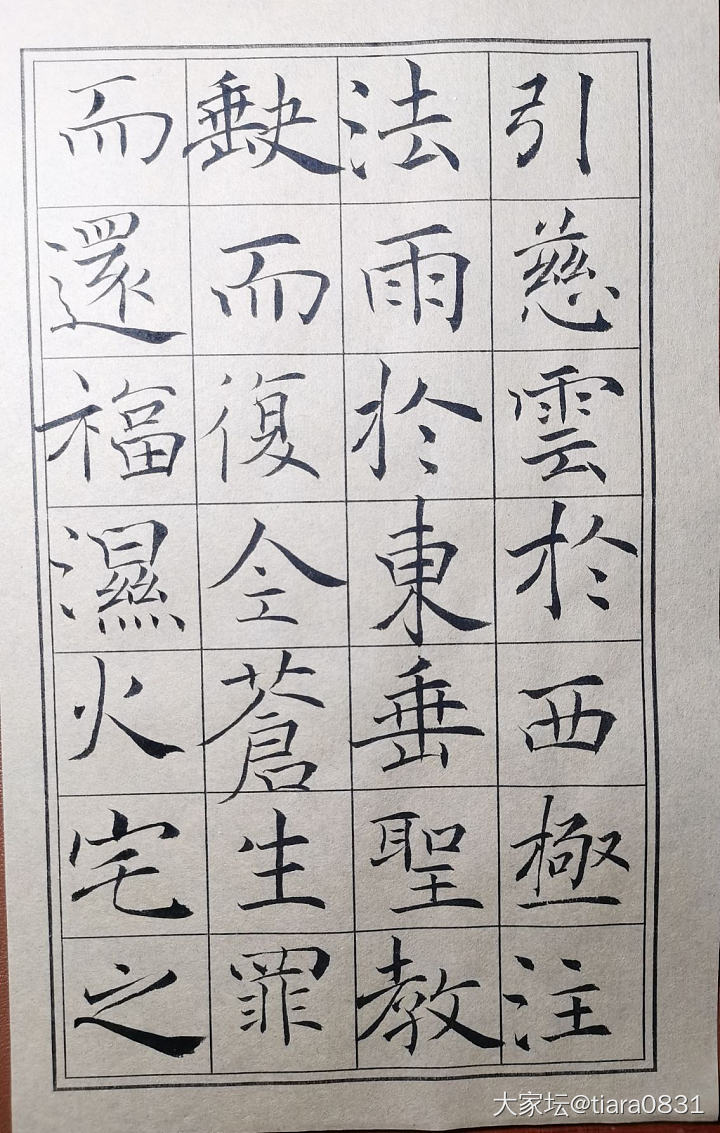 引慈雲於西極注
法雨於東垂聖教
缺而復全蒼生罪
而還福濕火宅之
大家坛@tiara0831